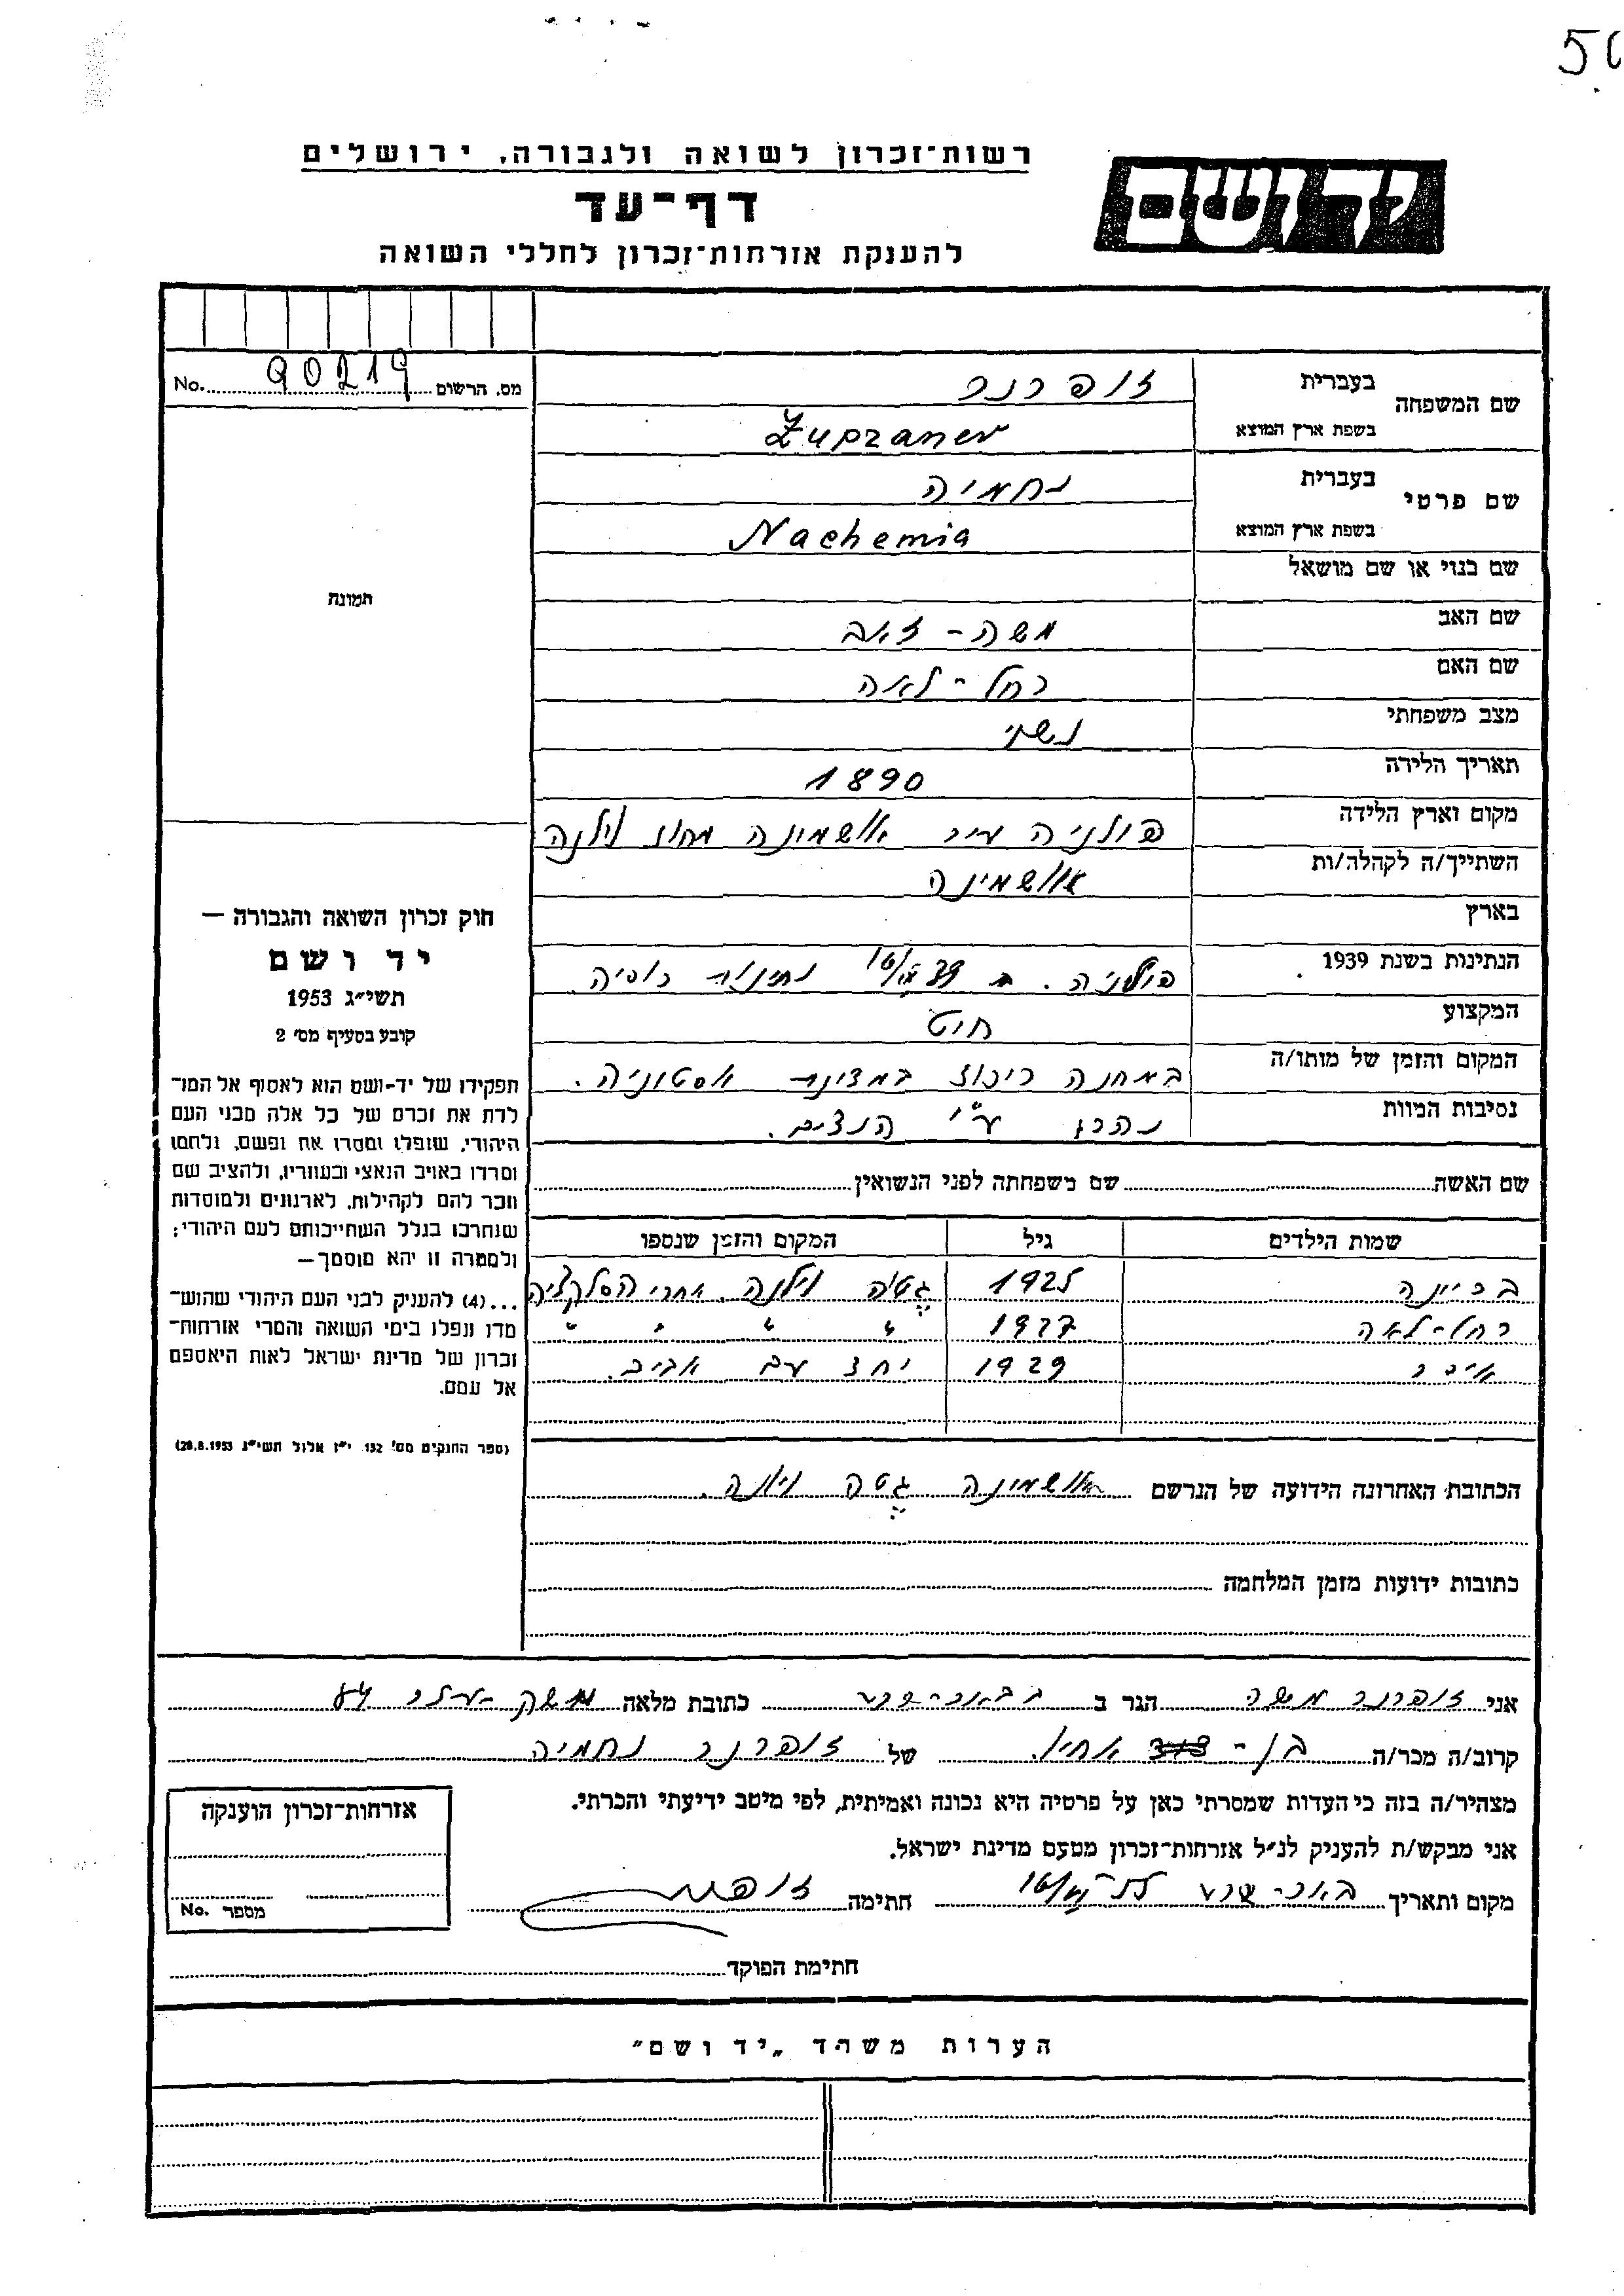 50
רשות־זכרון לשואה ולגבורה, ירושלים
יד ושם
דף־עד
להענקת אזרחות־זכרון לחללי השואה
מס. הרשום 90219 No.
שם המשפחה
בעברית זופרנר
בשפת ארץ המוצא Zupraner
שם פרטי
בעברית נחמיה
בשפת ארץ המוצא Nachemia
שם בנוי או שם מושאל
שם האב משה - זאב
שם האם רחל - לאה
מצב משפחתי נשוי
תאריך הלידה 1890
מקום וארץ הלידה פולניה עיר אושמינה מחוז וילנה
השתייך/ה לקהלה/ות אושמינה
בארץ
הנתינות בשנת 1939 פולניה. נתינות רוסיה.
המקצוע חיט
המקום והזמן של מותו/ה במחנה ריכוז במדינת אסטוניה.
נסיבות המוות נהרג ע"י הנצים.
שם האשה שם משפחתה לפני הנשואין
שמות הילדים גיל המקום והזמן שנספו
1925 גטה וילנה. אחרי הסלקציה
רחל-לאה 1927 " " " "
1929 יחד עם אביב.
הכתובת האחרונה הידועה של הנרשם אושמינה גטה וילנה.
כתובות ידועות מזמן המלחמה
תמונה
חוק זכרון השואה והגבורה —
יד ושם
תשי״ג 1953
קובע בסעיף מס׳ 2
תפקידו של יד-ושם הוא לאסוף אל המו־
לדת את זכרם של כל אלה מבני העם
היהודי, שנפלו ומסרו את נפשם, נלחמו
ומרדו באויב הנאצי ובעוזריו, ולהציב שם
וזכר להם לקהילות, לארגונים ולמוסדות
שנחרבו בגלל השתייכותם לעם היהודי;
ולמטרה זו יהא מוסמך—
...(4) להעניק לבני העם היהודי שהוש־
מדו ונפלו בימי השואה והמרי אזרחות־
זכרון של מדינת ישראל לאות היאספם
אל עמם.
(ספר החוקים מס׳ 132 י״ז אלול תשי״ג 28.8.1953)
אני זופרנר משה הגר ב באר-שבע כתובת מלאה
קרוב/ה מכר/ה בן - אחיו של זופרנר נחמיה
מצהיר/ה בזה כי העדות שמסרתי כאן על פרטיה היא נכונה ואמיתית, לפי מיטב ידיעתי והכרתי.
אני מבקש/ת להעניק לנ״ל אזרחות־זכרון מטעם מדינת ישראל.
מקום ותאריך באר-שבע חתימה
חתימת הפוקד
אזרחות־זכרון הוענקה
מספר No.
הערות משרד „יד ושם״